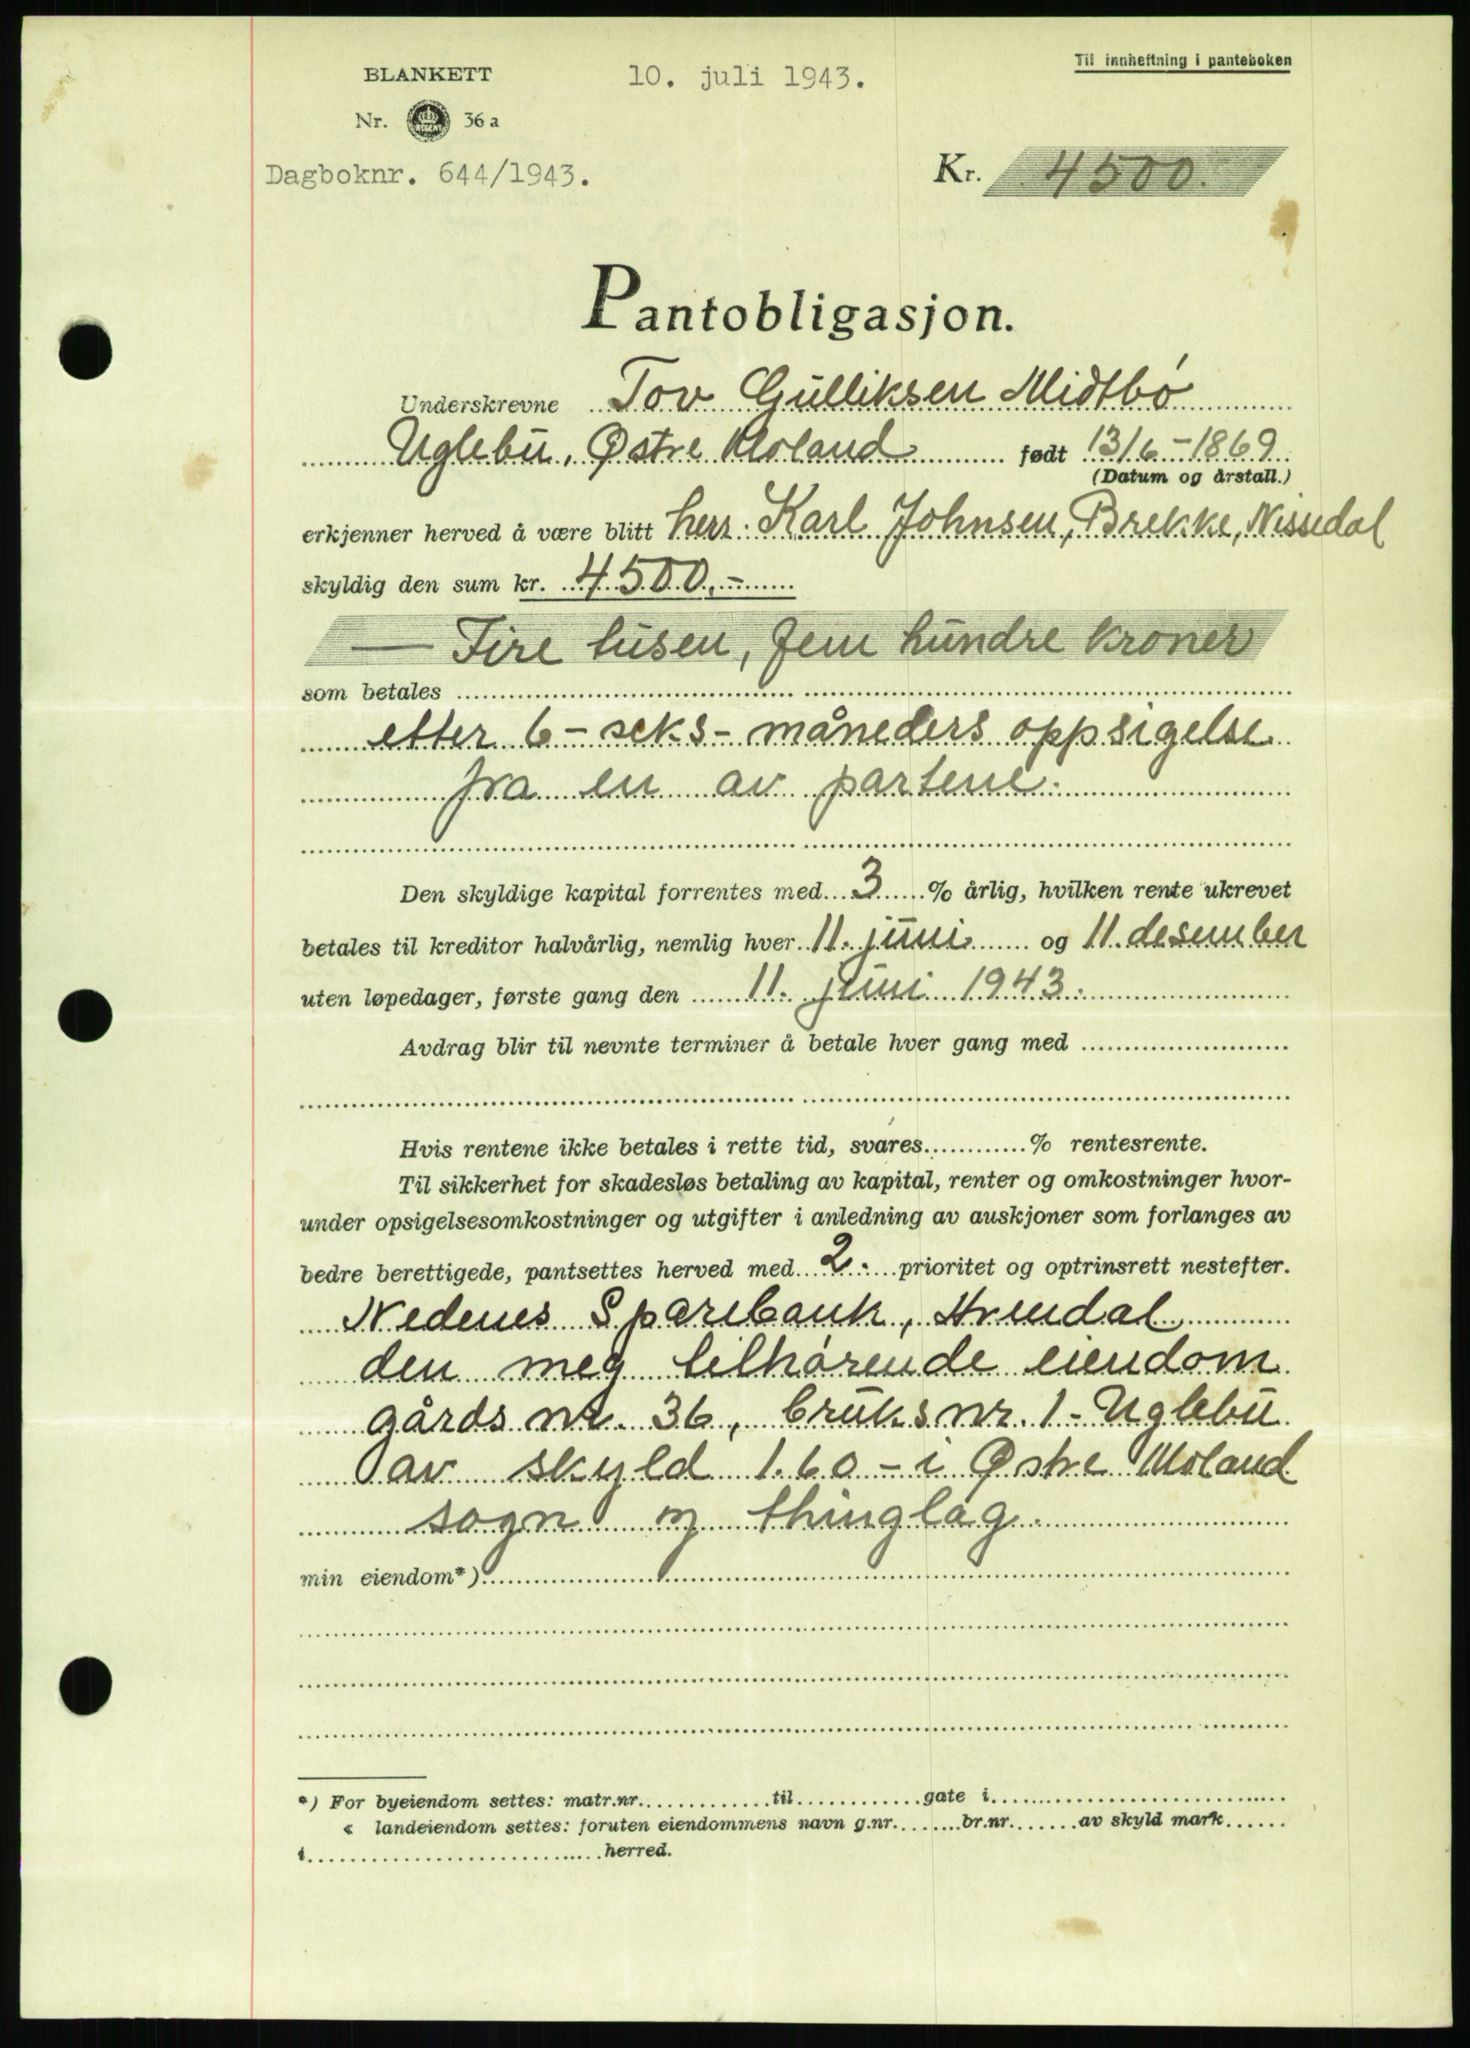 Til innheftning i panteboken
BLANKETT 10. juli 1943.
Nr. 36 a
Dagboknr. 644/1943.
Kr. 4500.
Pantobligasjon.
Underskrevne Tov Gulliksen Midtbø
Uglebu, Østre Moland født 13/6-1869
(Datum og årstall.)
erkjenner herved å være blitt herr. Karl Johnsen, Brekke, Nissedal
skyldig den sum kr. 4500,-
— Fire tusen, fem hundre kroner
som betales
etter 6 - seks - måneders oppsigelse
fra en av partene.
Den skyldige kapital forrentes med 3 % årlig, hvilken rente ukrevet
betales til kreditor halvårlig, nemlig hver 11. juni og 11. desember
uten løpedager, første gang den 11. juni 1943.
Avdrag blir til nevnte terminer å betale hver gang med
Hvis rentene ikke betales i rette tid, svares % rentesrente.
Til sikkerhet for skadesløs betaling av kapital, renter og omkostninger hvor-
under opsigelsesomkostninger og utgifter i anledning av auskjoner som forlanges av
bedre berettigede, pantsettes herved med 2. prioritet og optrinsrett nestefter.
Nedenes Sparebank, Arendal
den meg tilhørende eiendom
gårds nr. 36, bruks nr. 1 - Uglebu
av skyld 1.60 - i Østre Moland
sogn og thinglag.
min eiendom*)
*) For byeiendom settes: matr.nr. til gate i
« landeiendom settes: foruten eiendommens navn g.nr. br.nr. av skyld mark
i herred.